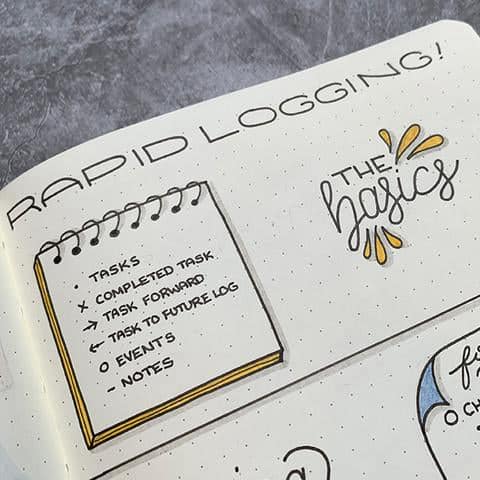 RAPID LOGGING!
THE
basics
• TASKS
X COMPLETED TASK
→ TASK FORWARD
← TASK TO FUTURE LOG
O EVENTS
- NOTES
O CH